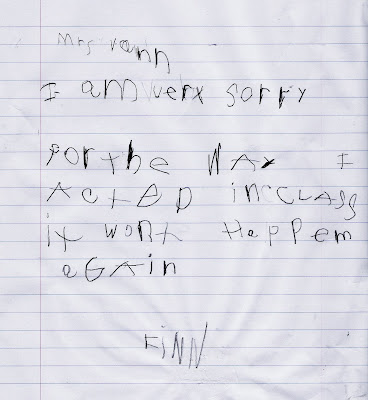 Mrs Vann
I am very sorry
for the WAY I
ACTED in CLASS
it wont Happem
aGAin
FiNN